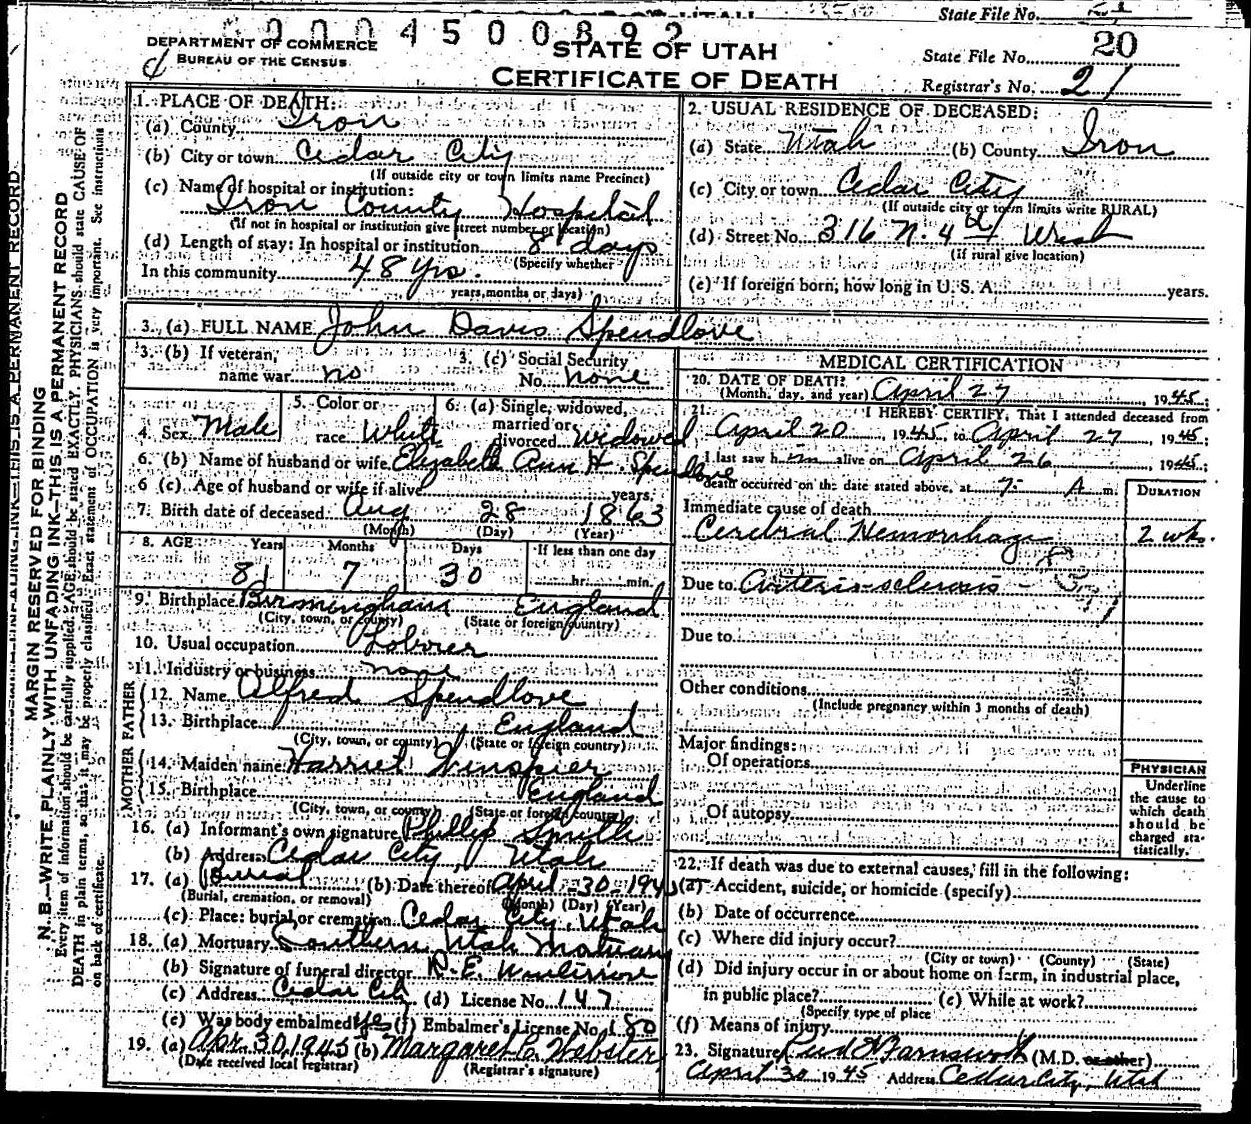 State File No.
0004500892
DEPARTMENT OF COMMERCE
BUREAU OF THE CENSUS
STATE OF UTAH
CERTIFICATE OF DEATH
State File No. 20
Registrar's No. 21
MARGIN RESERVED FOR BINDING
N. B.—WRITE PLAINLY, WITH UNFADING INK—THIS IS A PERMANENT RECORD
Every item of information should be carefully supplied. AGE should be stated EXACTLY. PHYSICIANS should state CAUSE OF
DEATH in plain terms, so that it may be properly classified. Exact statement of OCCUPATION is very important. See instructions
on back of certificate.
1. PLACE OF DEATH:
(a) County Iron
(b) City or town Cedar City
(If outside city or town limits name Precinct)
(c) Name of hospital or institution:
Iron County Hospital
(If not in hospital or institution give street number or location)
(d) Length of stay: In hospital or institution 8 days
(Specify whether
In this community 48 Yrs.
years, months or days)
2. USUAL RESIDENCE OF DECEASED:
(a) State Utah (b) County Iron
(c) City or town Cedar City
(If outside city or town limits write RURAL)
(d) Street No. 316 N. 4th West
(If rural give location)
(e) If foreign born, how long in U. S. A. years.
3. (a) FULL NAME John Davis Spendlove
3. (b) If veteran,
name war no
3. (c) Social Security
No. none
4. Sex Male
5. Color or
race White
6. (a) Single, widowed,
married or
divorced Widowed
6. (b) Name of husband or wife Elizabeth Ann H. Spendlove
6 (c) Age of husband or wife if alive years.
7. Birth date of deceased Aug 28 1863
(Month) (Day) (Year)
8. AGE Years Months Days If less than one day
81 7 30 hr. min.
9. Birthplace Birmingham England
(City, town, or county) (State or foreign country)
10. Usual occupation Laborer
11. Industry or business none
FATHER
12. Name Alfred Spendlove
13. Birthplace England
(City, town, or county) (State or foreign country)
MOTHER
14. Maiden name Harriet
15. Birthplace England
(City, town, or county) (State or foreign country)
16. (a) Informant's own signature Phillip Smith
(b) Address Cedar City, Utah
17. (a) Burial (b) Date thereof April 30 1945
(Burial, cremation, or removal) (Month) (Day) (Year)
(c) Place: burial or cremation Cedar City, Utah
18. (a) Mortuary Southern Utah Mortuary
(b) Signature of funeral director R. E.
(c) Address Cedar City (d) License No. 147
(e) Was body embalmed Yes (f) Embalmer's License No. 180
19. (a) Apr. 30, 1945 (b) Margaret C. Webster
(Date received local registrar) (Registrar's signature)
MEDICAL CERTIFICATION
20. DATE OF DEATH:
(Month, day, and year) April 27, 1945;
21. I HEREBY CERTIFY, That I attended deceased from
April 20, 1945, to April 27, 1945;
I last saw him alive on April 26 1945;
death occurred on the date stated above, at 7 A m.
DURATION
Immediate cause of death
Cerebral Hemorrhage 2 wks.
Due to Arterio-sclerosis
Due to
Other conditions
(Include pregnancy within 3 months of death)
Major findings:
Of operations
Of autopsy
PHYSICIAN
Underline
the cause to
which death
should be
charged sta-
tistically.
22. If death was due to external causes, fill in the following:
(a) Accident, suicide, or homicide (specify)
(b) Date of occurrence
(c) Where did injury occur?
(City or town) (County) (State)
(d) Did injury occur in or about home on farm, in industrial place,
in public place? (e) While at work?
(Specify type of place
(f) Means of injury
23. Signature Farnsworth (M.D. or other)
April 30 1945 Address Cedar City, Utah